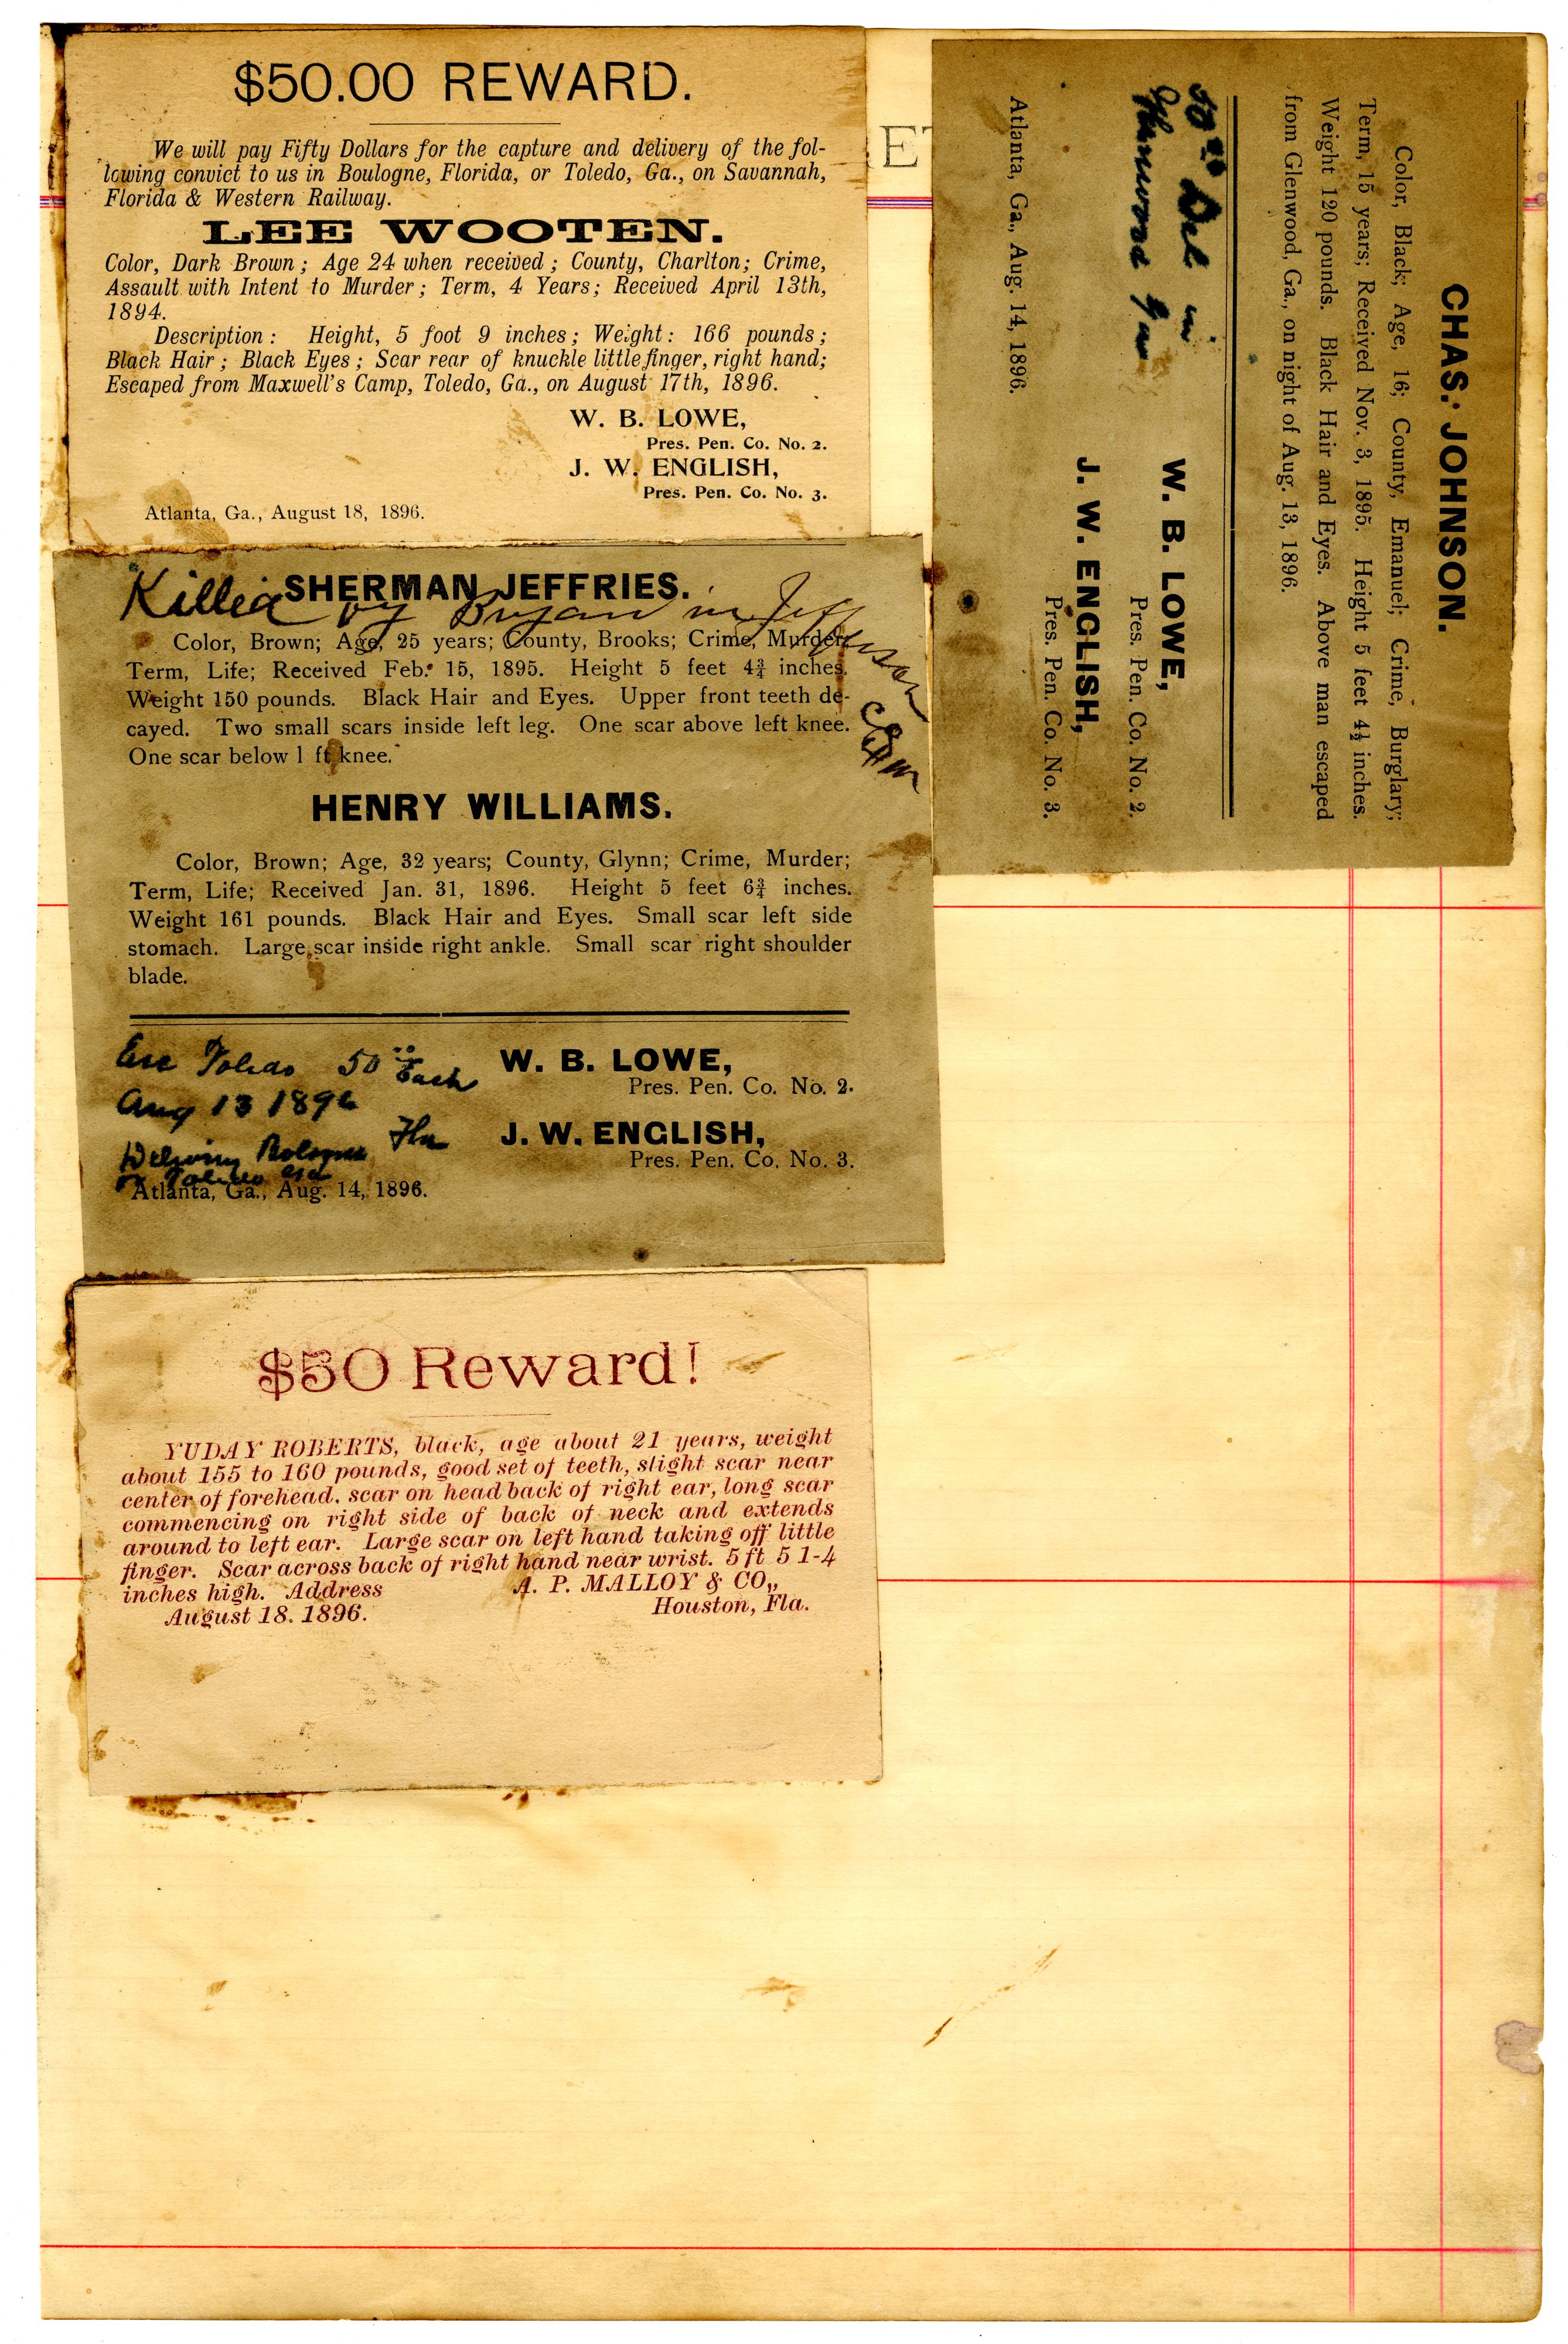 $50.00 REWARD.
We will pay Fifty Dollars for the capture and delivery of the fol-
lowing convict to us in Boulogne, Florida, or Toledo, Ga., on Savannah,
Florida & Western Railway.
LEE WOOTEN.
Color, Dark Brown; Age 24 when received; County, Charlton; Crime,
Assault with Intent to Murder; Term, 4 Years; Received April 13th,
1894.
Description: Height, 5 foot 9 inches; Weight: 166 pounds;
Black Hair; Black Eyes; Scar rear of knuckle little finger, right hand;
Escaped from Maxwell's Camp, Toledo, Ga., on August 17th, 1896.
W. B. LOWE,
Pres. Pen. Co. No. 2.
J. W. ENGLISH,
Pres. Pen. Co. No. 3.
Atlanta, Ga., August 18, 1896.
Killed by Bryan in Jefferson
SHERMAN JEFFRIES.
Color, Brown; Age, 25 years; County, Brooks; Crime, Murder;
Term, Life; Received Feb. 15, 1895. Height 5 feet 4¾ inches.
Weight 150 pounds. Black Hair and Eyes. Upper front teeth de-
cayed. Two small scars inside left leg. One scar above left knee.
One scar below l ft knee.
HENRY WILLIAMS.
Color, Brown; Age, 32 years; County, Glynn; Crime, Murder;
Term, Life; Received Jan. 31, 1896. Height 5 feet 6¾ inches.
Weight 161 pounds. Black Hair and Eyes. Small scar left side
stomach. Large scar inside right ankle. Small scar right shoulder
blade.
Esc Toledo 50.00 Each
Aug 13 1896
Fla
or Toledo Ga
W. B. LOWE,
Pres. Pen. Co. No. 2.
J. W. ENGLISH,
Pres. Pen. Co. No. 3.
Atlanta, Ga., Aug. 14, 1896.
$50 Reward!
YUDAY ROBERTS, black, age about 21 years, weight
about 155 to 160 pounds, good set of teeth, slight scar near
center of forehead. scar on head back of right ear, long scar
commencing on right side of back of neck and extends
around to left ear. Large scar on left hand taking off little
finger. Scar across back of right hand near wrist. 5 ft 5 1-4
inches high. Address A. P. MALLOY & CO.,
August 18. 1896. Houston, Fla.
ET
CHAS. JOHNSON.
Color, Black; Age, 16; County, Emanuel; Crime, Burglary;
Term, 15 years; Received Nov. 3, 1895. Height 5 feet 4½ inches.
Weight 120 pounds. Black Hair and Eyes. Above man escaped
from Glenwood, Ga., on night of Aug. 13, 1896.
50.00 Del in
W. B. LOWE,
Pres. Pen. Co. No. 2.
J. W. ENGLISH,
Pres. Pen. Co. No. 3.
Atlanta, Ga., Aug. 14, 1896.